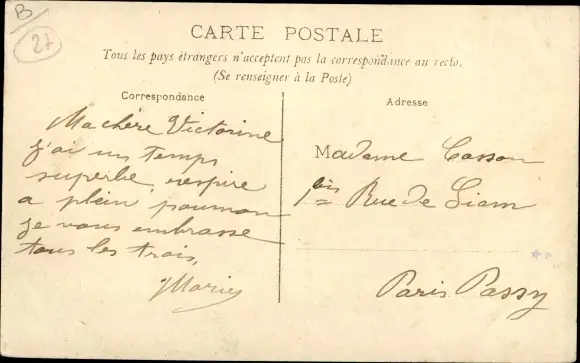 B
27
CARTE POSTALE
Tous les pays étrangers n'acceptent pas la correspondance au recto.
(Se renseigner à la Poste)
Correspondance
Ma chère Victorine
j'ai un temps
superbe, respire
a plein poumon
je vous embrasse
tous les trois,
Marie
Adresse
Madame Casson
1 bis Rue de Siam
Paris Passy